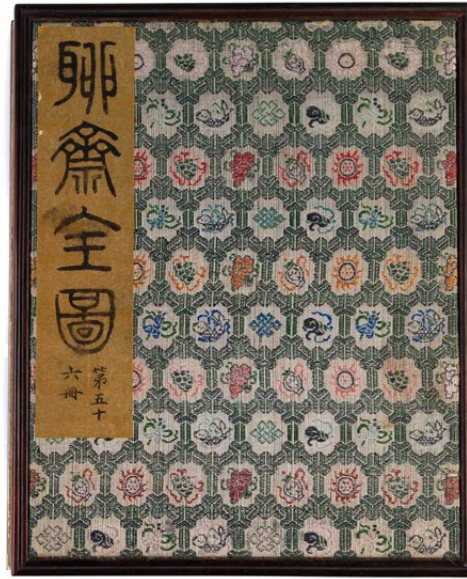 聊齋全圖
第五十
六冊